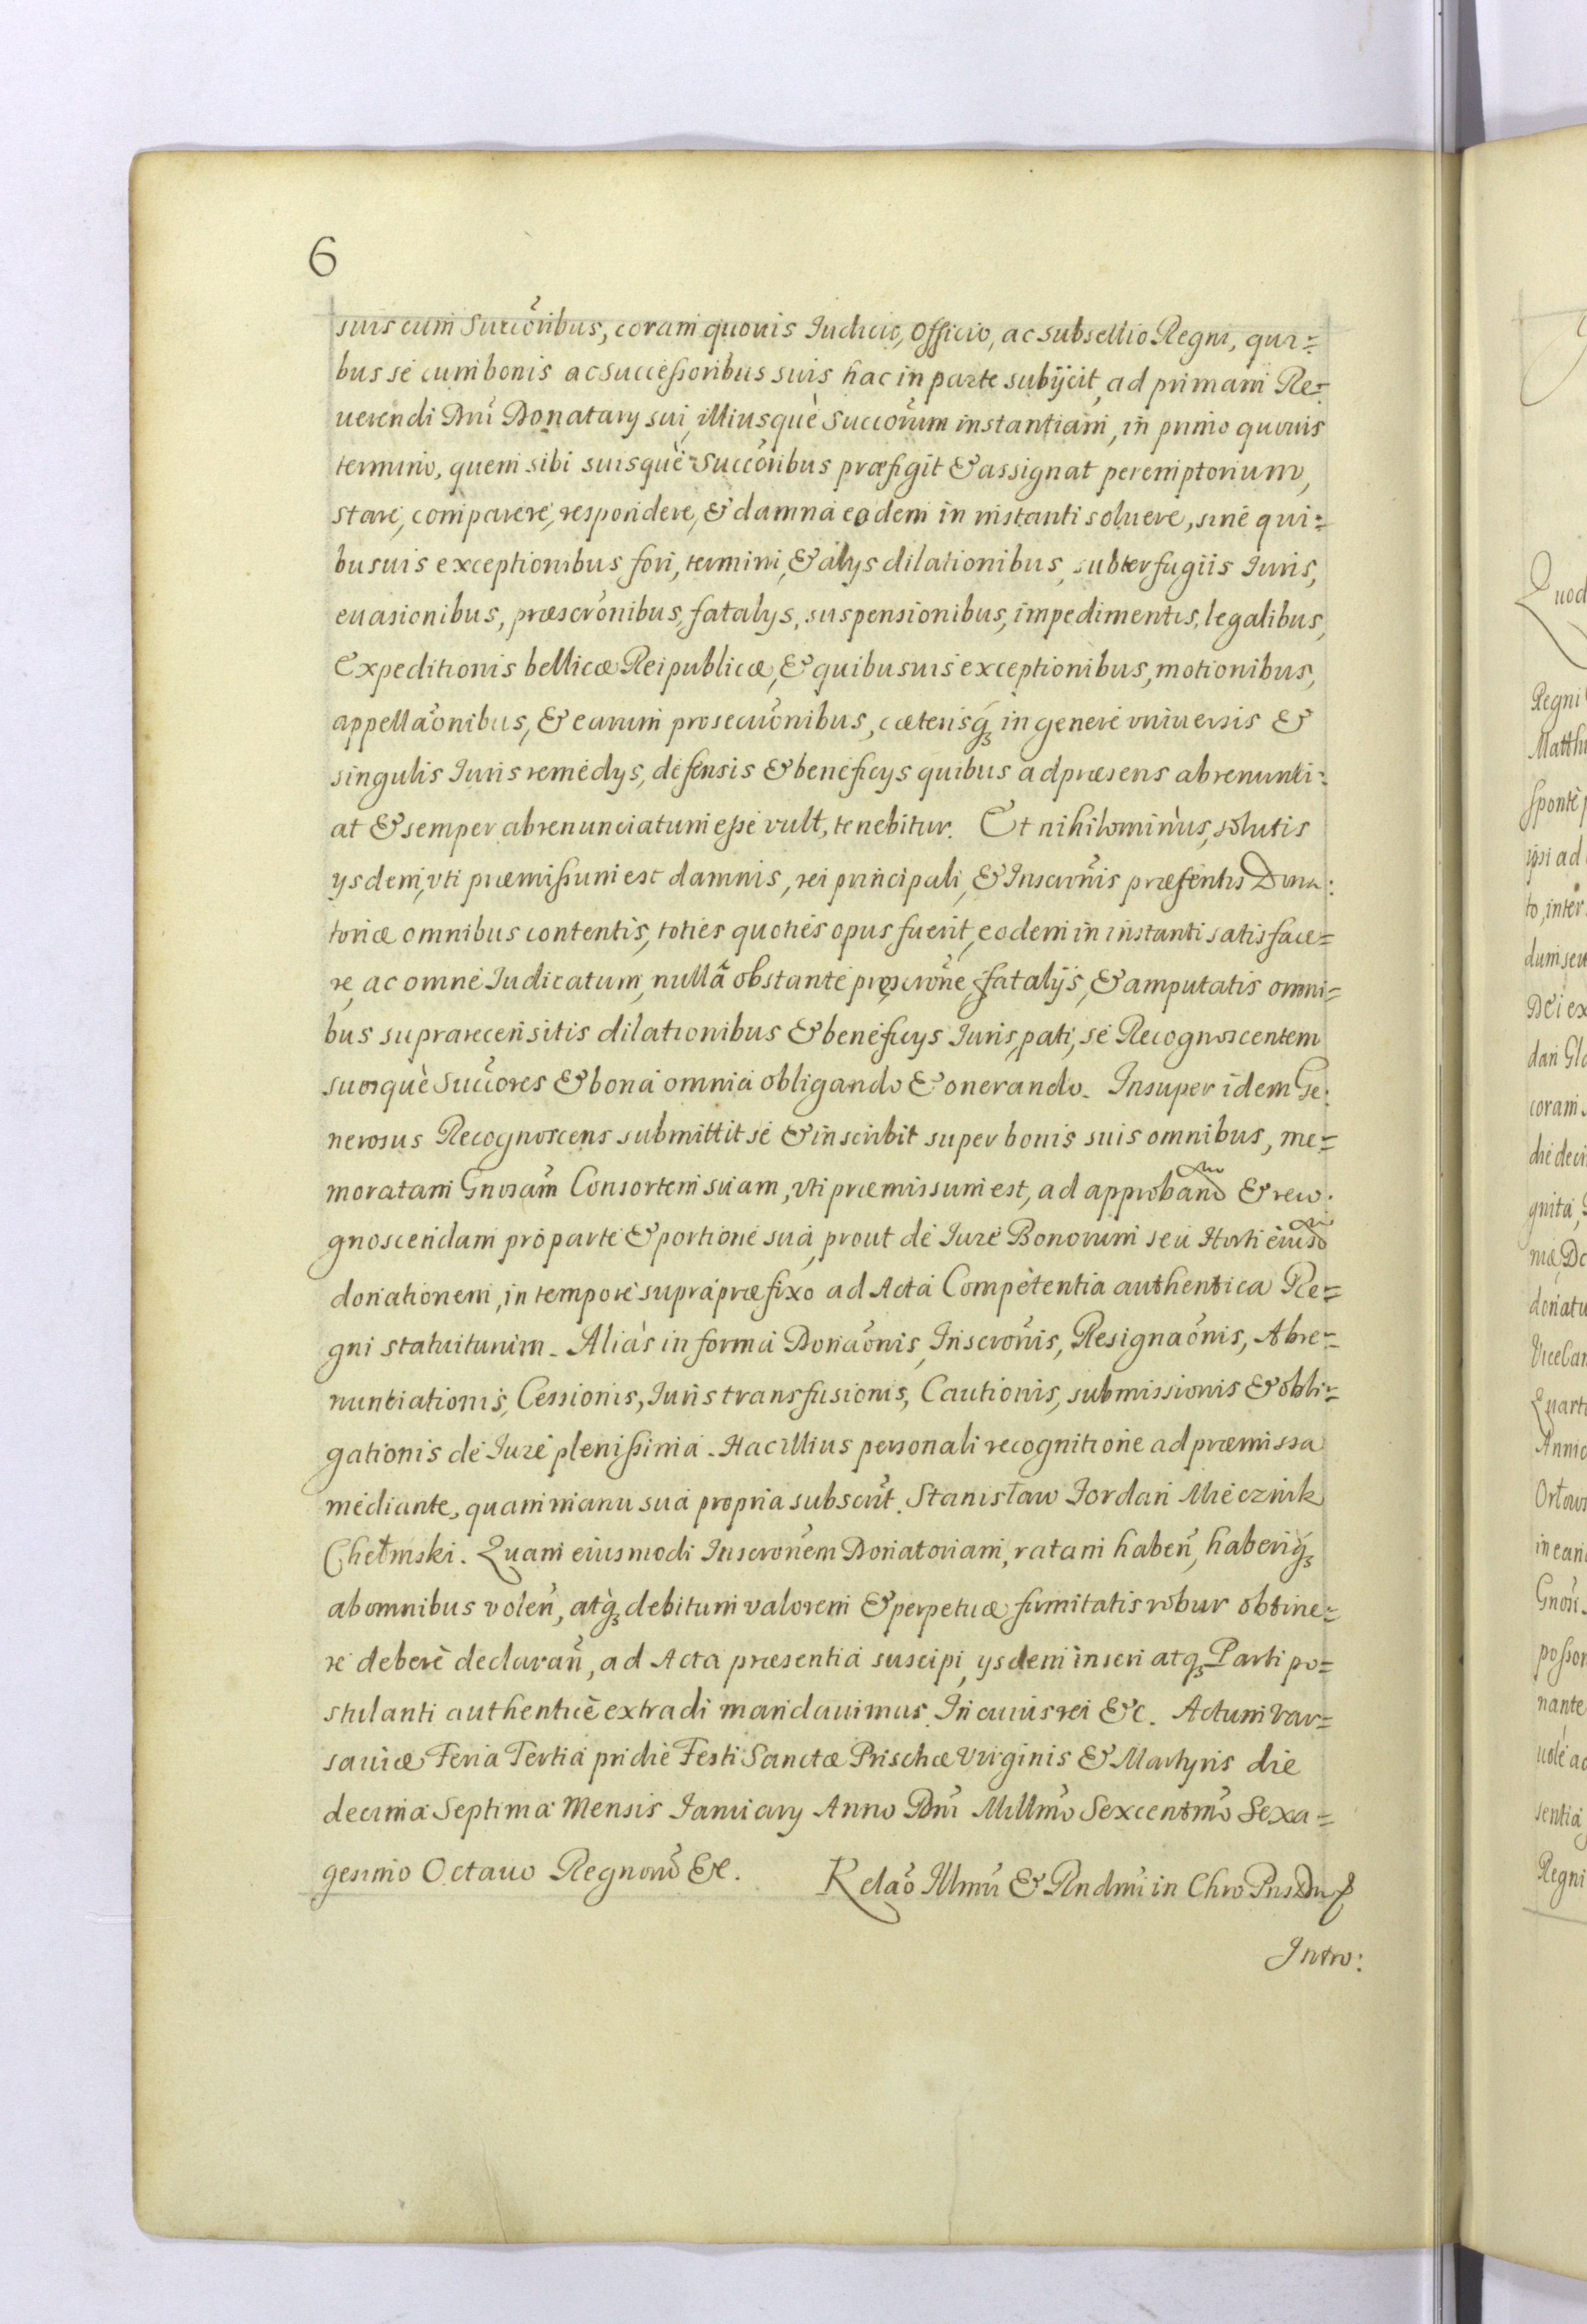 6
suis cum Succõribus, coram quouis Iudicio, Officio, ac subsellio Regni, qui=
bus se cum bonis ac successoribus suis hac in parte subijcit, ad primam Re=
uerendi Dnĩ Donatarÿ sui, illiusquè Succõrum instantiam, in primo quouis
termino, quem sibi suisquè Succõribus præfigit & assignat peremptorium,
stare, comparere, respondere, & damna eodem in instanti soluere, sine qui=
busuis exceptionibus fori, termini, & alÿs dilationibus, subterfugiis Iuris,
euasionibus, præscrõnibus, fatalÿs, suspensionibus, impedimentis, legalibus,
Expeditionis bellicæ Reipublicæ, & quibusuis exceptionibus, motionibus,
appellaõnibus, & earum prosecuõnibus, cæterisq́ꝫ in genere vniuersis &
singulis Iuris remedÿs, defensis & beneficÿs quibus ad præsens abrenunti=
at & semper abrenunciatum esse vult, tenebitur. Et nihilominùs, solutis
ÿsdem, vti præmissum est damnis, rei principali, & Inscrõnis præsentis Dona:
toriæ omnibus contentis, toties quoties opus fuerit, eodem in instanti satisface=
re, ac omne Iudicatum, nullâ obstante præscrõne, fatalijs, & amputatis omni=
bus suprarecensitis dilationibus & beneficÿs Iuris, pati, se Recognoscentem
suosquè Succõres & bona omnia obligando & onerando. Insuper idem Ge:
nerosus Recognoscens submittit se & inscribit super bonis suis omnibus, me=
moratam Gnosam̃ Consortem suam, vti præmissum est, ad approband & reco:
gnoscendam pro parte & portione sua, prout de Iure Bonorum seu Horti eiusd
donationem, in tempore supra præfixo ad Acta Competentia authentica Re=
gni statuiturum. Aliàs in forma Donaõnis, Inscrõnis, Resignaõnis, Abre=
nuntiationis, Cessionis, Iuris transfusionis, Cautionis, submissionis & obli=
gationis de Iure plenissima. Hac illius personali recognitione ad præmissa
mediante, quam manu sua propria subscrit̃. Stanisław Jordan Miecznik
Chełmski. Quam eiusmodi Inscrõnem Donatoriam, ratam haben̄, haberiq́ꝫ
ab omnibus volen̄, atq́ꝫ debitum valorem & perpetuæ firmitatis robur obtine=
re debere declaran̄, ad Acta præsentia suscipi, ÿsdem inseri atqꝫ Parti po=
stulanti authenticè extradi mandauimus. In cuius rei &c. Actum Var=
sauiæ Feria Tertia pridie Festi Sanctæ Prischæ Virginis & Martyris die
decima Septima Mensis Ianuarÿ Anno Dnĩ Millmõ Sexcentmõ Sexa=
gesimo Octauo Regnorũ &c. Relaõ Illmĩ & Rndmĩ in Chro Pris Dni P
Intro: